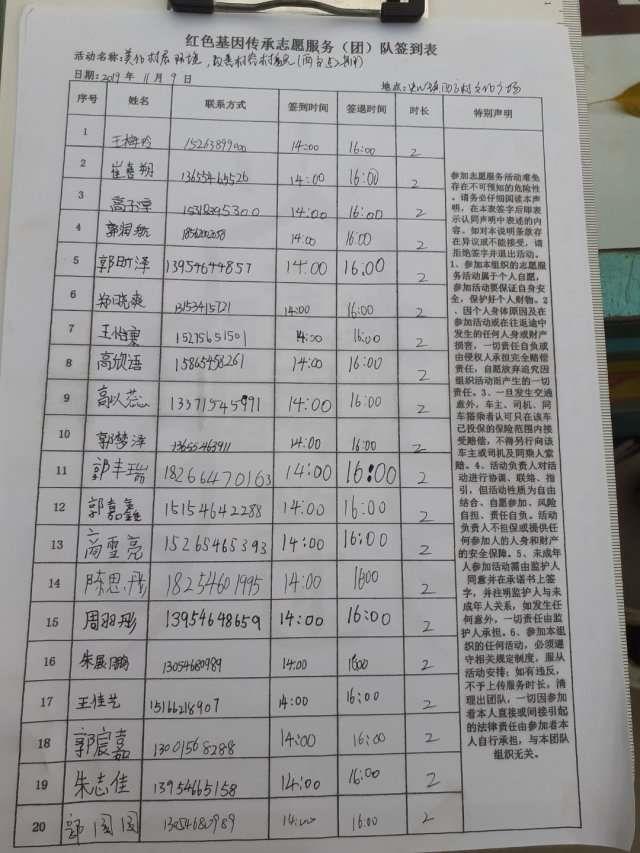 红色基因传承志愿服务（团）队签到表
活动名称：美化村居环境，改善村容村貌
日期：2019年11月9日
地点：
序号 姓名 联系方式 签到时间 签退时间 时长 特别声明
1 王梅玲 14:00 16:00 2
2 崔喜朔 14:00 16:00 2
3 14:00 16:00 2
4 郭润航 14:00 16:00 2
5 郭町泽 13954644857 14:00 16:00 2
6 郑晓爽 14:00 16:00 2
7 15275651501 14:00 16:00 2
8 高欣语 15865458261 14:00 16:00 2
9 13371545991 14:00 16:00 2
10 郭梦泽 14:00 16:00 2
11 郭丰瑞 18266470163 14:00 16:00 2
12 郭嘉鑫 15154642288 14:00 16:00 2
13 高雪亮 15265465393 14:00 16:00 2
14 陈思彤 18254601995 14:00 1600 2
15 周羽彤 13954648659 14:00 16:00 2
16 13054680989 14:00 1600 2
17 王佳艺 15166218907 14:00 16:00 2
18 郭宸嘉 13001568288 14:00 16:00 2
19 朱志佳 13954665158 14:00 16:00 2
20 郭园园 13054680989 14:00 16:00 2
参加志愿服务活动难免
存在不可预知的危险性
。请务必仔细阅读本声
明，在本表签字后即表
示认同声明中表述的内
容。如对本说明条款存
在异议或不能接受，请
拒绝签字并退出活动。
1、参加本组织的志愿服
务活动属于个人自愿，
参加活动要保证自身安
全，保护好个人财物。2
、因个人身体原因及在
参加活动或在往返途中
发生的任何人身或财产
损害，一切责任自负或
由侵权人承担完全赔偿
责任，自愿放弃追究因
组织活动而产生的一切
责任。3、一旦发生交通
意外，车主、司机、同
车搭乘者认可只在该车
已投保的保险范围内接
受赔偿，不得另行向该
车主或司机及同乘人索
赔。4、活动负责人对活
动进行协调、联络、指
引，但活动性质为自由
结合、自愿参加、风险
自担、责任自负。活动
负责人不担保或提供任
何参加人的人身和财产
的安全保障。5、未成年
人参加活动需由监护人
同意并在承诺书上签
字，并注明监护人与未
成年人关系，如发生任
何意外，一切责任由监
护人承担。6、参加本组
织的任何活动，必须遵
守相关规定制度，服从
活动安排；如有违反，
不予上传服务时长，清
理出团队，一切因参加
者本人直接或间接引起
的法律责任由参加者本
人自行承担，与本团队
组织无关。